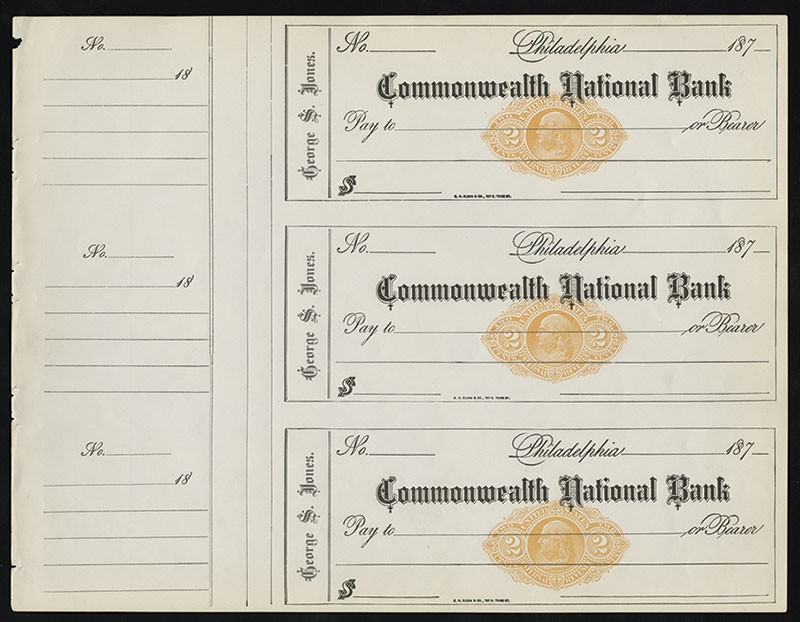 No.
18
No. Philadelphia 187
Commonwealth National Bank
Pay to or Bearer
$
George S. Jones.
2 2
No.
18
No. Philadelphia 187
Commonwealth National Bank
Pay to or Bearer
$
George S. Jones.
2 2
No.
18
No. Philadelphia 187
Commonwealth National Bank
Pay to or Bearer
$
George S. Jones.
2 2